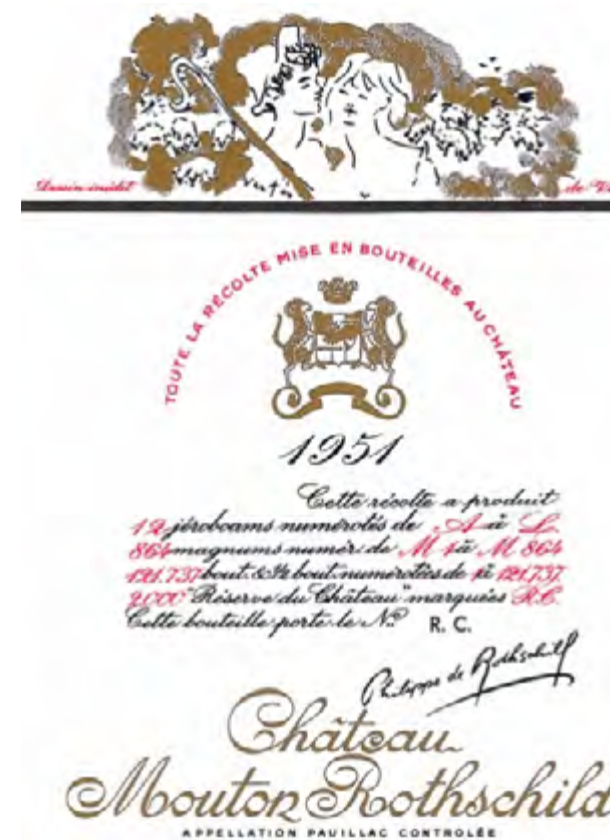 Dessin inédit de
Vertès
TOUTE LA RÉCOLTE MISE EN BOUTEILLES AU CHÂTEAU
1951
Cette récolte a produit
12 jéroboams numérotés de A à L
864 magnums numér. de M 1 à M 864
121.737 bout. & ½ bout. numérotées de 1 à 121.737
2.000 "Réserve du Château" marquées R.C.
Cette bouteille porte le No R. C.
Philippe de Rothschild
Château
Mouton Rothschild
APPELLATION PAUILLAC CONTROLÉE